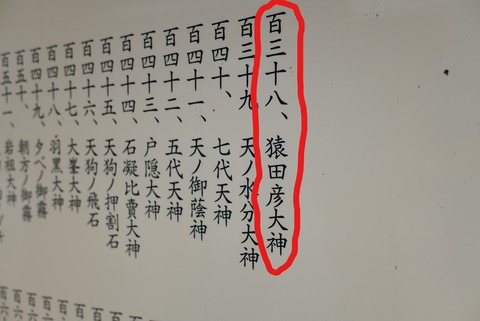 百三十八、猿田彦大神
百三十九、天ノ水分大神
百四十、七代天神
百四十一、天ノ御蔭神
百四十二、五代天神
百四十三、戸隠大神
百四十四、石凝比賣大神
百四十五、天狗ノ押割石
百四十六、天狗ノ飛石
百四十七、大峯大神
百四十八、羽黒大神
百四十九、夕べノ御霧
百五十、朝方ノ御霧
百五十一、岩祖大神